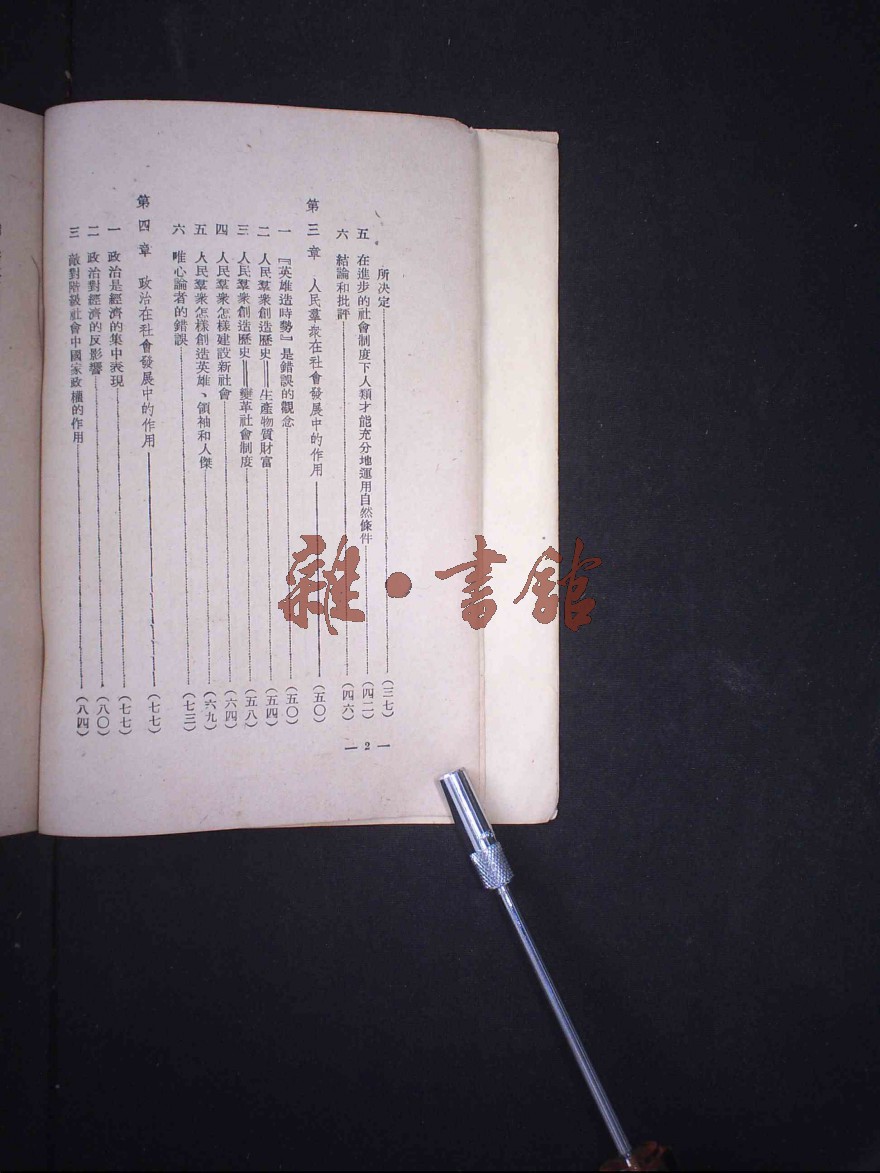 所決定……(三七)
五 在進步的社會制度下人類才能充分地運用自然條件……(四二)
六 結論和批評……(四六)
第三章 人民羣衆在社會發展中的作用——(五〇)
一 『英雄造時勢』是錯誤的觀念……(五〇)
二 人民羣衆創造歷史——生產物質財富……(五四)
三 人民羣衆創造歷史——變革社會制度……(五八)
四 人民羣衆怎樣建設新社會……(六四)
五 人民羣衆怎樣創造英雄、領袖和人傑……(六九)
六 唯心論者的錯誤……(七三)
第四章 政治在社會發展中的作用——(七七)
一 政治是經濟的集中表現……(七七)
二 政治對經濟的反影響……(八〇)
三 敵對階級社會中國家政權的作用……(八四)
— 2 —
雜·書館